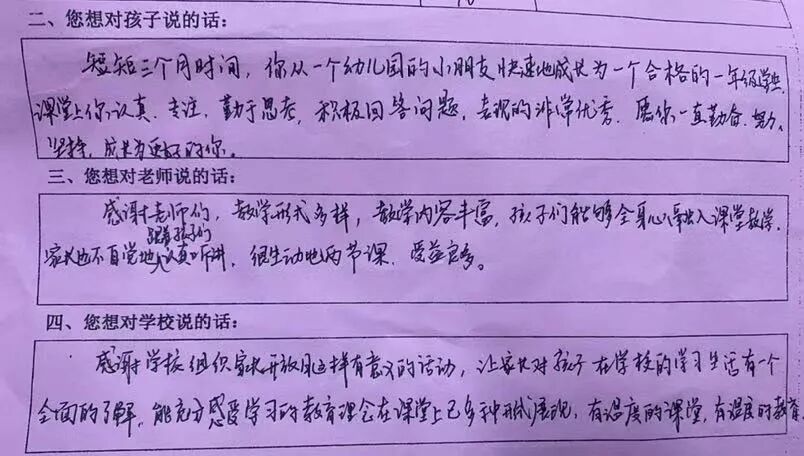 二、您想对孩子说的话:
短短三个月时间，你从一个幼儿园的小朋友快速地成长为一个合格的一年级学生，
课堂上你认真、专注、勤于思考，积极回答问题，表现的非常优秀，愿你一直勤奋、努力、
坚持，成长为更好的你。
三、您想对老师说的话:
感谢老师们，教学形式多样，教学内容丰富，孩子们能够全身心融入课堂教学，
跟着孩子们
家长也不自觉地认真听讲，很生动地两节课，受益良多。
四、您想对学校说的话:
感谢学校组织家长开放日这样有意义的活动，让家长对孩子在学校的学习生活有一个
全面的了解，能充分感受学习的教育理念在课堂上已多种形式展现，有温度的课堂，有温度的教育